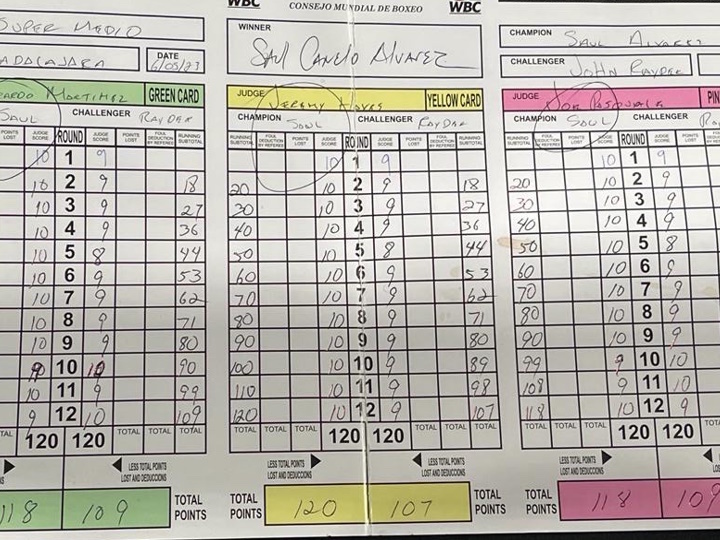 WBC CONSEJO MUNDIAL DE BOXEO WBC
SUPER MEDIO
ADALAJARA DATE 6/05/23
WINNER
SAUL CANELO ALVAREZ
CHAMPION SAUL ALVAREZ
CHALLENGER JOHN RAYDER
ARDO MARTINEZ GREEN CARD
JUDGE JEREMY HAYES YELLOW CARD
JUDGE PIN
SAUL CHALLENGER RAYDER
CHAMPION SAUL CHALLENGER RAYDER
CHAMPION SAUL CHALLENGER
POINTS LOST JUDGE SCORE ROUND JUDGE SCORE POINTS LOST FOUL DEDUCTION BY REFEREE RUNNING SUBTOTAL
RUNNING SUBTOTAL FOUL DEDUCTION BY REFEREE POINTS LOST JUDGE SCORE ROUND JUDGE SCORE POINTS LOST FOUL DEDUCTION BY REFEREE RUNNING SUBTOTAL
RUNNING SUBTOTAL FOUL DEDUCTION BY REFEREE POINTS LOST JUDGE SCORE ROUND JUDGE SCORE POINTS LOST
10 1 9
10 2 9 18
10 3 9 27
10 4 9 36
10 5 8 44
10 6 9 53
10 7 9 62
10 8 9 71
10 9 9 80
9 10 10 90
10 11 9 99
9 12 10 109
TAL 120 120 TOTAL TOTAL TOTAL
LESS TOTAL POINTS LOST AND DEDUCCIONS
118 109 TOTAL POINTS
10 1 9
20 10 2 9 18
30 10 3 9 27
40 10 4 9 36
50 10 5 8 44
60 10 6 9 53
70 10 7 9 62
80 10 8 9 71
90 10 9 9 80
100 10 10 9 89
110 10 11 9 98
120 10 12 9 107
TOTAL TOTAL TOTAL 120 120 TOTAL TOTAL TOTAL
LESS TOTAL POINTS LOST AND DEDUCCIONS LESS TOTAL POINTS LOST AND DEDUCCIONS
TOTAL POINTS 120 107 TOTAL POINTS
10 1 9
20 10 2 9
30 10 3 9
40 10 4 9
50 10 5 8
60 10 6 9
70 10 7 9
80 10 8 9
90 10 9 9
99 9 10 10
108 9 11 10
118 10 12 9
TOTAL TOTAL TOTAL 120 120 TOTAL
LESS TOTAL POINTS LOST AND DEDUCCIONS LESS TOTAL LOST AND
TOTAL POINTS 118 109